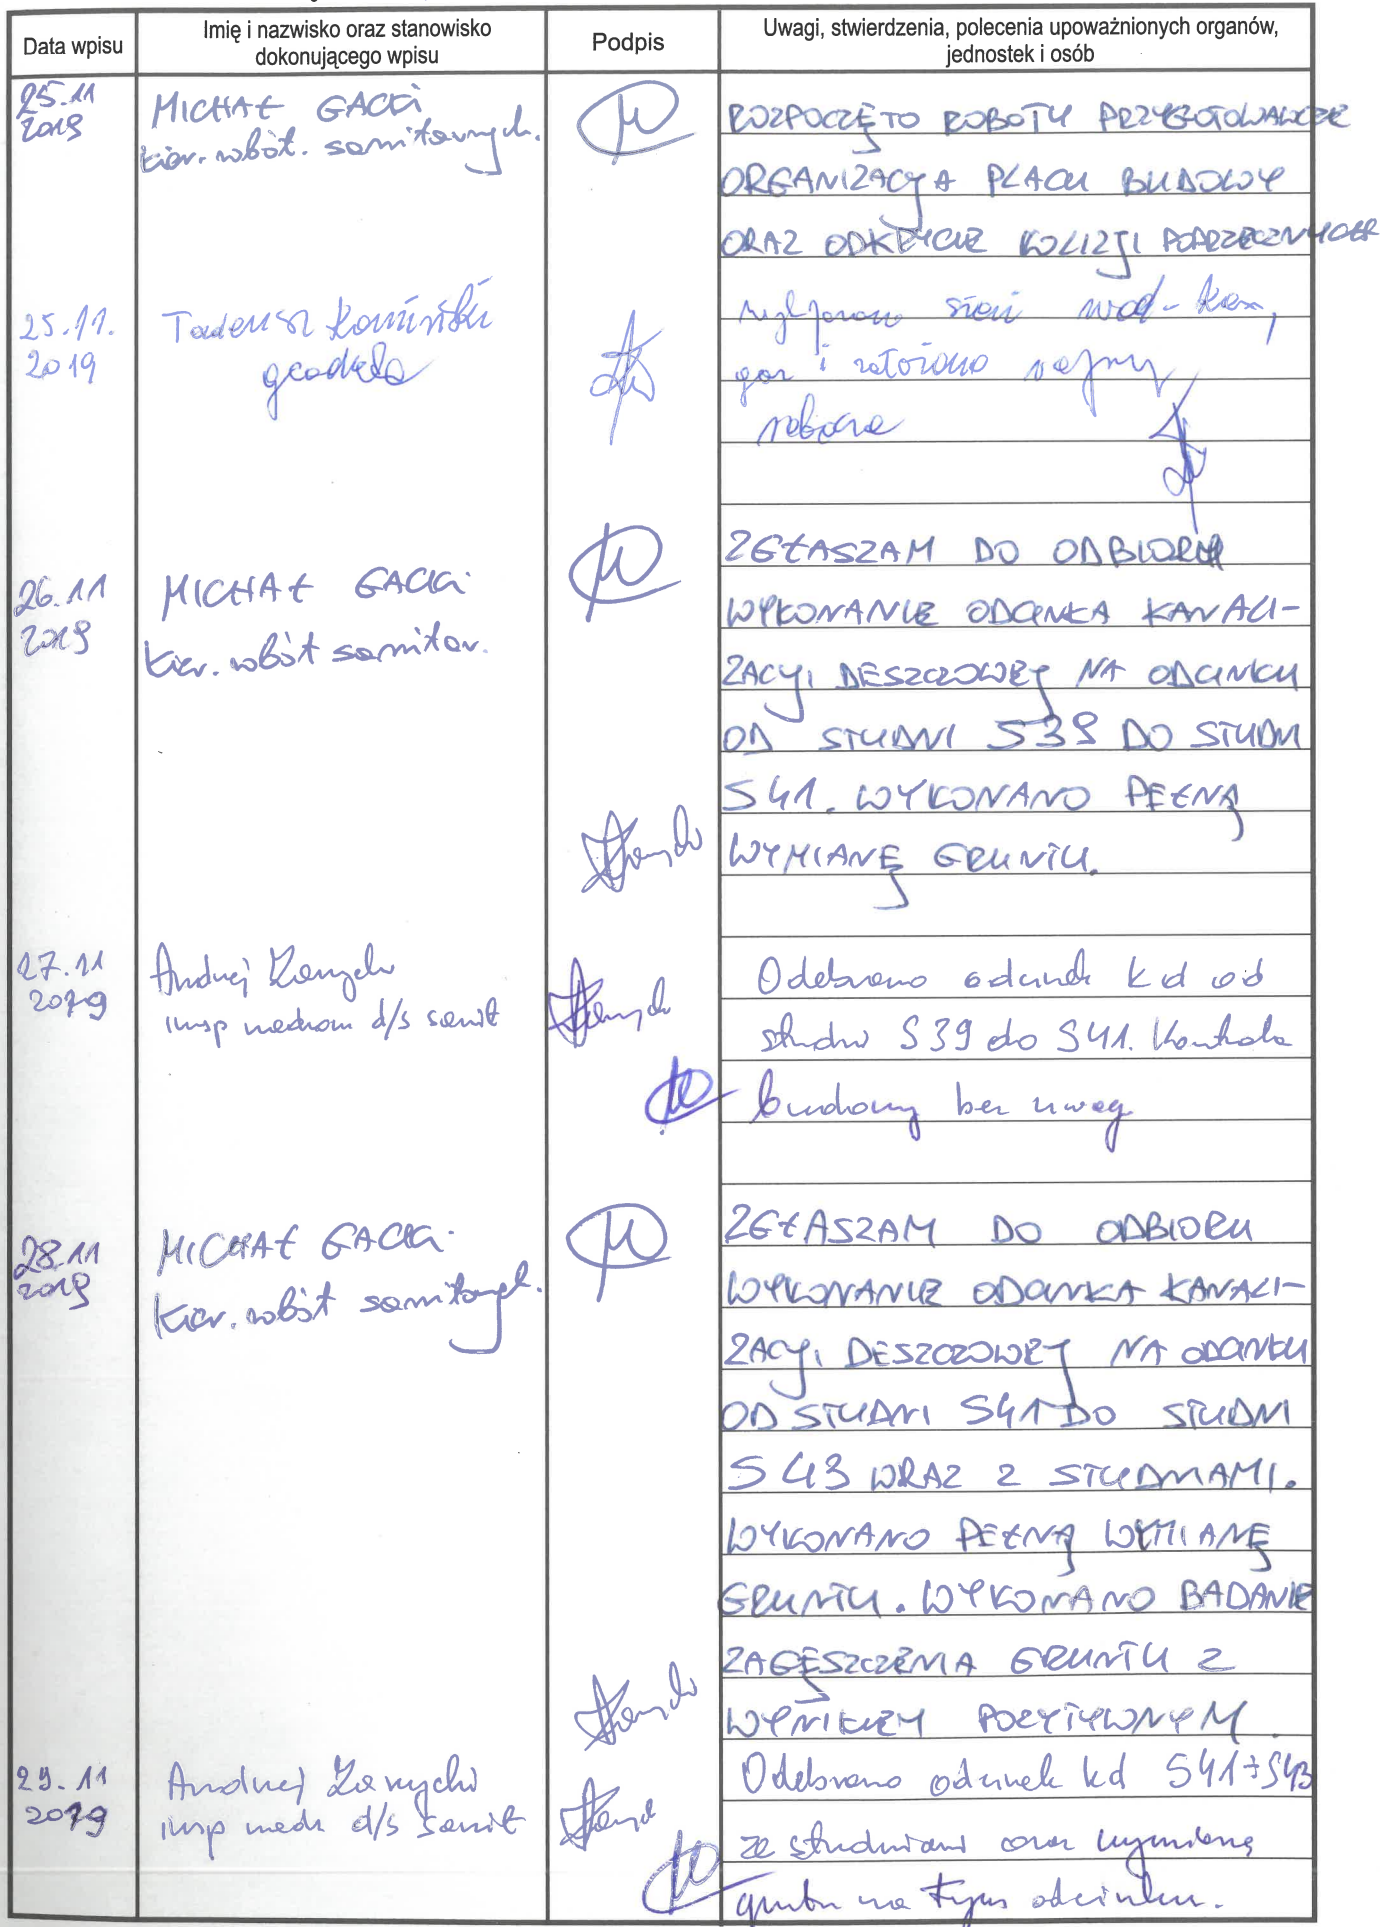 Data wpisu
Imię i nazwisko oraz stanowisko
dokonującego wpisu
Podpis
Uwagi, stwierdzenia, polecenia upoważnionych organów,
jednostek i osób
25.11
2019
MICHAŁ GACKI
kier. robót. sanitarnych.
ROZPOCZĘTO ROBOTY PRZYGOTOWAWCZE
ORGANIZACJA PLACU BUDOWY
ORAZ ODKRYCIE KOLIZJI POPRZECZNYCH
25.11.
2019
Tadeusz Kamiński
geodeta
sieci wod-kan,
gaz i założono repery
robocze
26.11
2019
MICHAŁ GACKI
kier. robót sanitar.
ZGŁASZAM DO ODBIORU
WYKONANIE ODCINKA KANALI-
ZACJI DESZCZOWEJ NA ODCINKU
OD STUDNI S39 DO STUDNI
S41. WYKONANO PEŁNĄ
WYMIANĘ GRUNTU.
27.11
2019
Andrzej
insp nadzoru d/s sanit
Odebrano odcinek kd od
studni S39 do S41. Kontrola
budowy bez uwag
28.11
2019
MICHAŁ GACKI
kier. robót sanitarnych.
ZGŁASZAM DO ODBIORU
WYKONANIE ODCINKA KANALI-
ZACJI DESZCZOWEJ NA ODCINKU
OD STUDNI S41 DO STUDNI
S43 WRAZ Z STUDNIAMI.
WYKONANO PEŁNĄ WYMIANĘ
GRUNTU. WYKONANO BADANIE
ZAGĘSZCZENIA GRUNTU Z
WYNIKIEM POZYTYWNYM.
29.11
2019
Andrzej
insp nadz d/s sanit
Odebrano odcinek kd S41÷S43
ze studniami oraz wymianę
gruntu na tym odcinku.